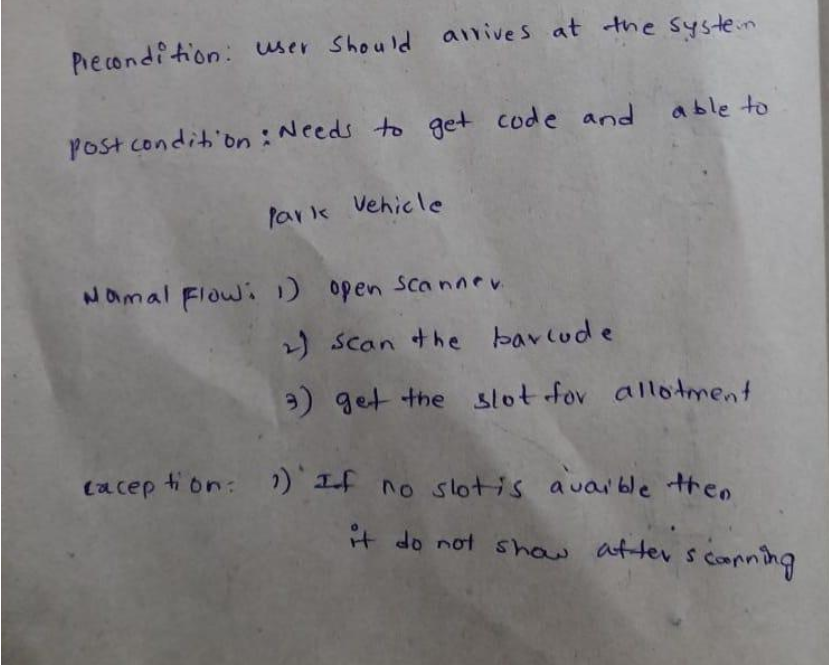 Precondition: user should arrives at the system
post condition: Needs to get code and able to
park vehicle
Normal Flow: 1) open scanner
2) scan the barcode
3) get the slot for allotment
exception: 1) If no slot is avaible then
it do not show after scanning